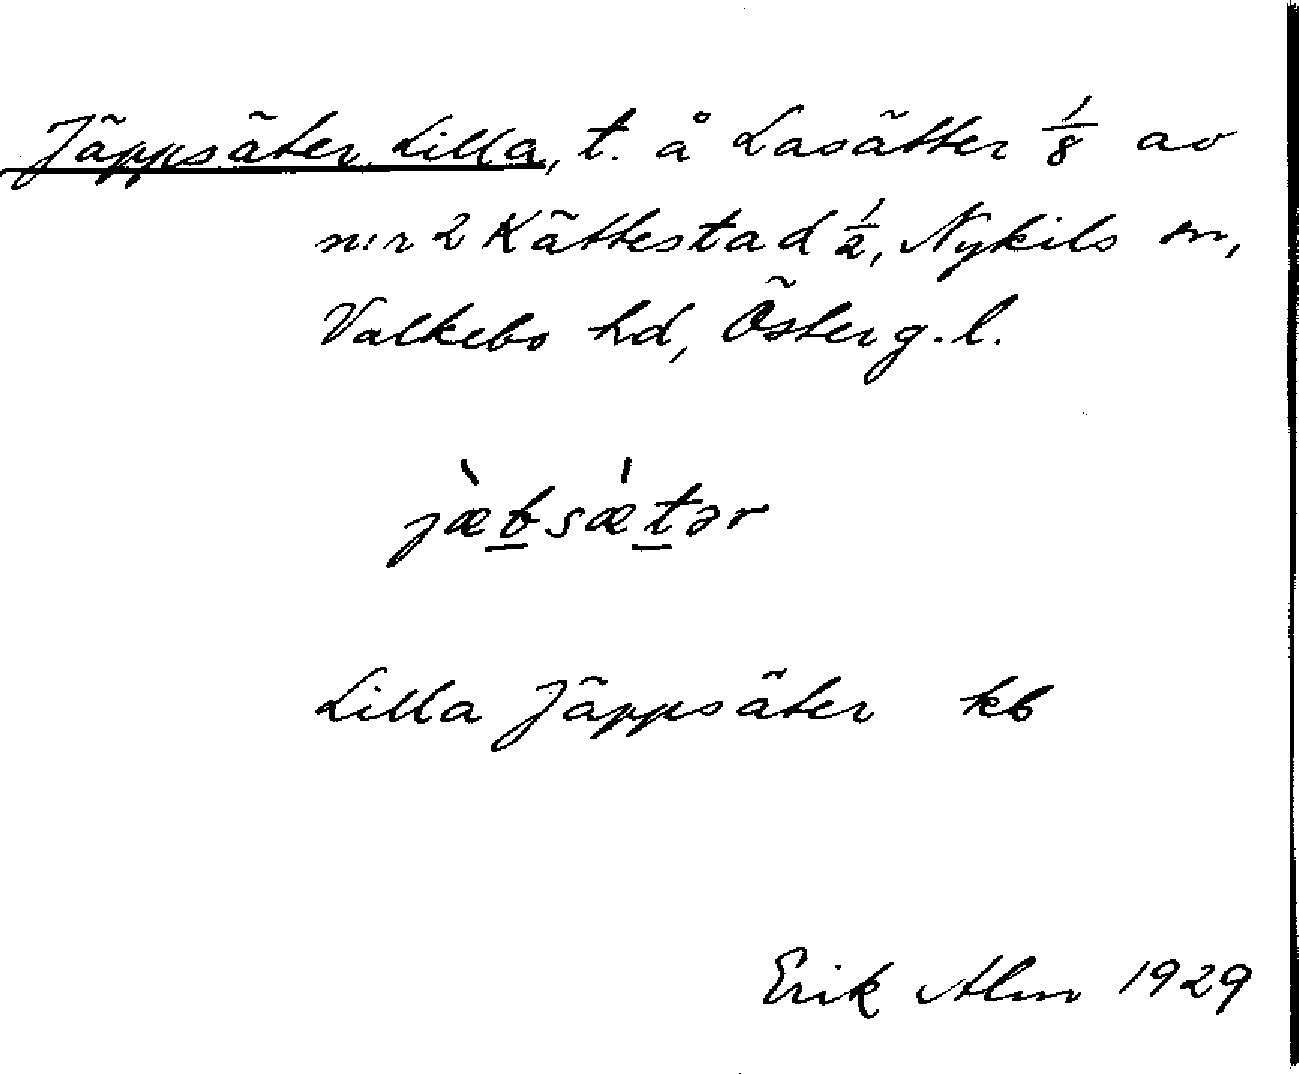 Jäppsäter, Lilla, t. å Lasätter 1/8 av
n:r 2 Kättestad 1/2, Nykils sn,
Valkebo hd, Österg. l.
jæ̀b̲sǽt̲ər
Lilla Jäppsäter kb
Erik Alm 1929